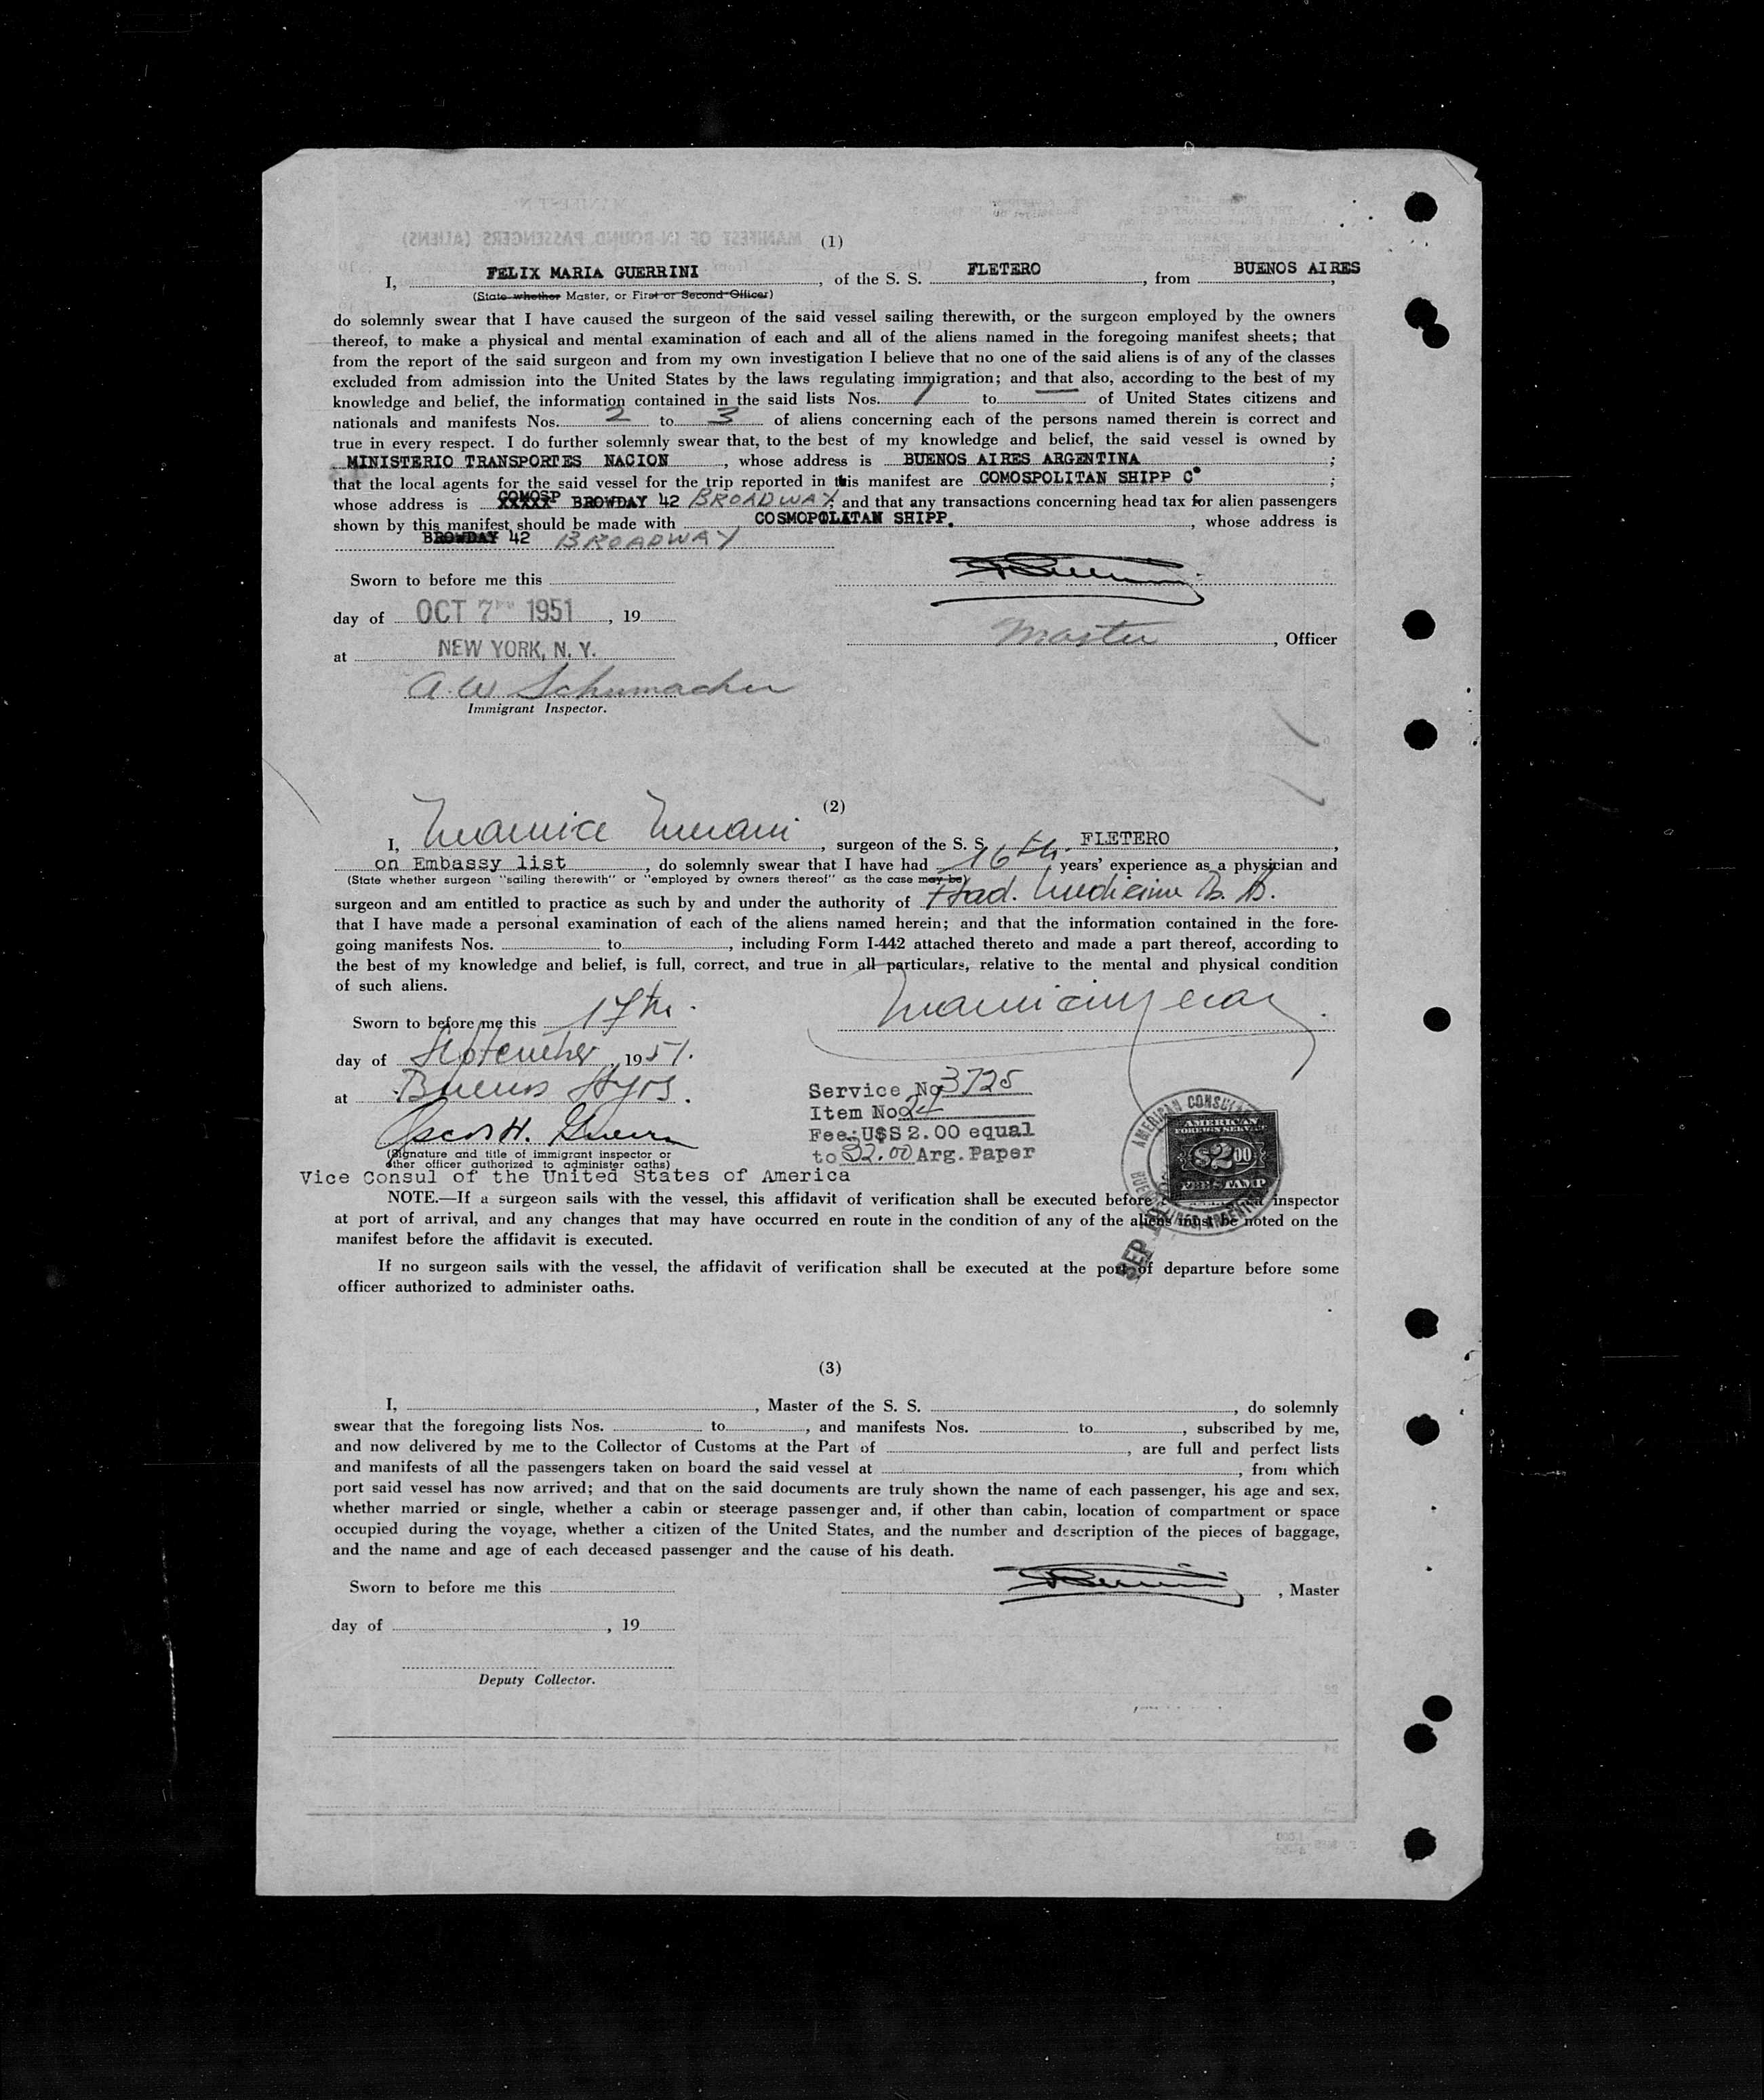 (1)
I, FELIX MARIA GUERRINI, of the S. S. FLETERO, from BUENOS AIRES,
(State whether Master, or First or Second Officer)
do solemnly swear that I have caused the surgeon of the said vessel sailing therewith, or the surgeon employed by the owners
thereof, to make a physical and mental examination of each and all of the aliens named in the foregoing manifest sheets; that
from the report of the said surgeon and from my own investigation I believe that no one of the said aliens is of any of the classes
excluded from admission into the United States by the laws regulating immigration; and that also, according to the best of my
knowledge and belief, the information contained in the said lists Nos. 1 to — of United States citizens and
nationals and manifests Nos. 2 to 3 of aliens concerning each of the persons named therein is correct and
true in every respect. I do further solemnly swear that, to the best of my knowledge and belief, the said vessel is owned by
MINISTERIO TRANSPORTES NACION, whose address is BUENOS AIRES ARGENTINA;
that the local agents for the said vessel for the trip reported in this manifest are COMOSPOLITAN SHIPP Cº;
whose address is COMOSP XXXXX BROWDAY 42 BROADWAY, and that any transactions concerning head tax for alien passengers
shown by this manifest should be made with COSMOPOLITAN SHIPP., whose address is
BROWDAY 42 BROADWAY
Sworn to before me this
day of OCT 7 1951, 19
Master, Officer
at NEW YORK, N. Y.
A. W. Schumacher
Immigrant Inspector.
(2)
I, , surgeon of the S. S. FLETERO,
on Embassy list, do solemnly swear that I have had 16th. years' experience as a physician and
(State whether surgeon "sailing therewith" or "employed by owners thereof" as the case may be)
surgeon and am entitled to practice as such by and under the authority of
that I have made a personal examination of each of the aliens named herein; and that the information contained in the fore-
going manifests Nos. to, including Form I-442 attached thereto and made a part thereof, according to
the best of my knowledge and belief, is full, correct, and true in all particulars, relative to the mental and physical condition
of such aliens.
Sworn to before me this 17th.
day of September, 1951.
at Buenos Ayrs.
Service No 3725
Item No 24
Fee: U$S 2.00 equal
to 32.00 Arg. Paper
Oscar H. Guerra
(Signature and title of immigrant inspector or
other officer authorized to administer oaths)
Vice Consul of the United States of America
AMERICAN CONSULA
BUENOS AIRES, ARGENTINA
AMERICAN
FOREIGN SERVICE
$2.00
FEE STAMP
SEP
NOTE.—If a surgeon sails with the vessel, this affidavit of verification shall be executed before inspector
at port of arrival, and any changes that may have occurred en route in the condition of any of the aliens must be noted on the
manifest before the affidavit is executed.
If no surgeon sails with the vessel, the affidavit of verification shall be executed at the port of departure before some
officer authorized to administer oaths.
(3)
I, , Master of the S. S. , do solemnly
swear that the foregoing lists Nos. to, and manifests Nos. to, subscribed by me,
and now delivered by me to the Collector of Customs at the Part of , are full and perfect lists
and manifests of all the passengers taken on board the said vessel at , from which
port said vessel has now arrived; and that on the said documents are truly shown the name of each passenger, his age and sex,
whether married or single, whether a cabin or steerage passenger and, if other than cabin, location of compartment or space
occupied during the voyage, whether a citizen of the United States, and the number and description of the pieces of baggage,
and the name and age of each deceased passenger and the cause of his death.
Sworn to before me this
, Master
day of , 19
Deputy Collector.